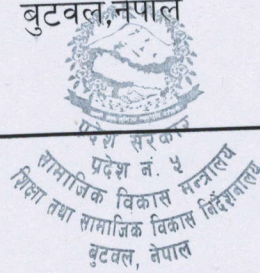 बुटवल,नेपाल
प्रदेश सरकार
प्रदेश नं. ५
सामाजिक विकास मन्त्रालय
शिक्षा तथा सामाजिक विकास निर्देशनालय
बुटवल, नेपाल